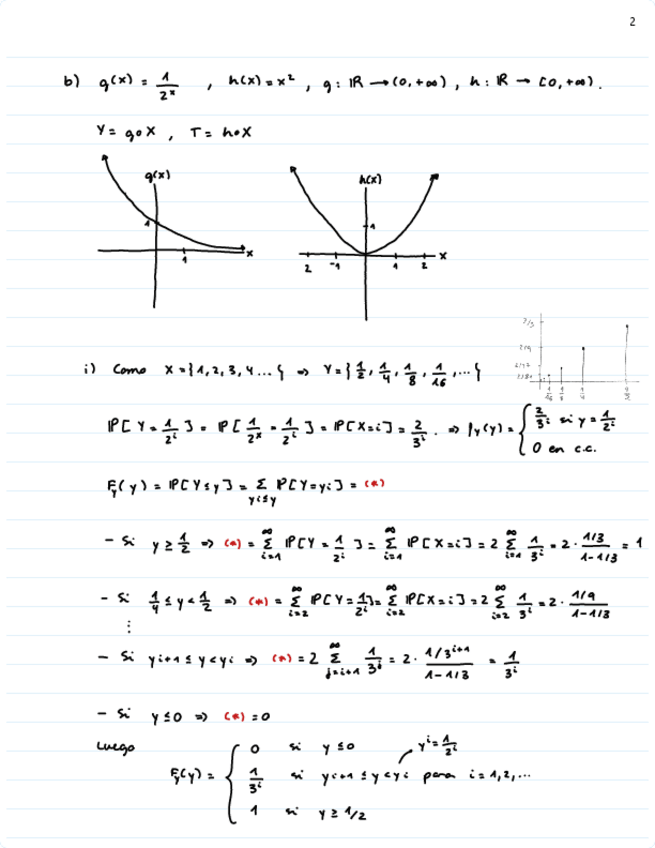 2
b) g(x) = 1/2^x , h(x) = x² , g: ℝ → (0, +∞) , h: ℝ → [0, +∞).
Y = g∘X , T = h∘X
g(x) h(x)
1 1
1 x 2 -1 1 2 x
2/3
2/9
i) Como X = {1, 2, 3, 4 ...} ⇒ Y = {1/2, 1/4, 1/8, 1/16, ...}
ℙ[Y = 1/2^i] = ℙ[1/2^x = 1/2^i] = ℙ[X = i] = 2/3^i . ⇒ p_Y(y) = { 2/3^i si y = 1/2^i
0 en c.c.
F_Y(y) = ℙ[Y ≤ y] = Σ_{yi ≤ y} ℙ[Y = yi] = (*)
- Si y ≥ 1/2 ⇒ (*) = Σ_{i=1}^∞ ℙ[Y = 1/2^i] = Σ_{i=1}^∞ ℙ[X = i] = 2 Σ_{i=1}^∞ 1/3^i = 2 · (1/3)/(1 - 1/3) = 1
- Si 1/4 ≤ y < 1/2 ⇒ (*) = Σ_{i=2}^∞ ℙ[Y = 1/2^i] = Σ_{i=2}^∞ ℙ[X = i] = 2 Σ_{i=2}^∞ 1/3^i = 2 · (1/9)/(1 - 1/3)
⋮
- Si yi+1 ≤ y < yi ⇒ (*) = 2 Σ_{j=i+1}^∞ 1/3^j = 2 · (1/3^{i+1})/(1 - 1/3) = 1/3^i
- Si y ≤ 0 ⇒ (*) = 0
Luego y^i = 1/2^i
F_Y(y) = { 0 si y ≤ 0
1/3^i si yi+1 ≤ y < yi para i = 1, 2, ...
1 si y ≥ 1/2